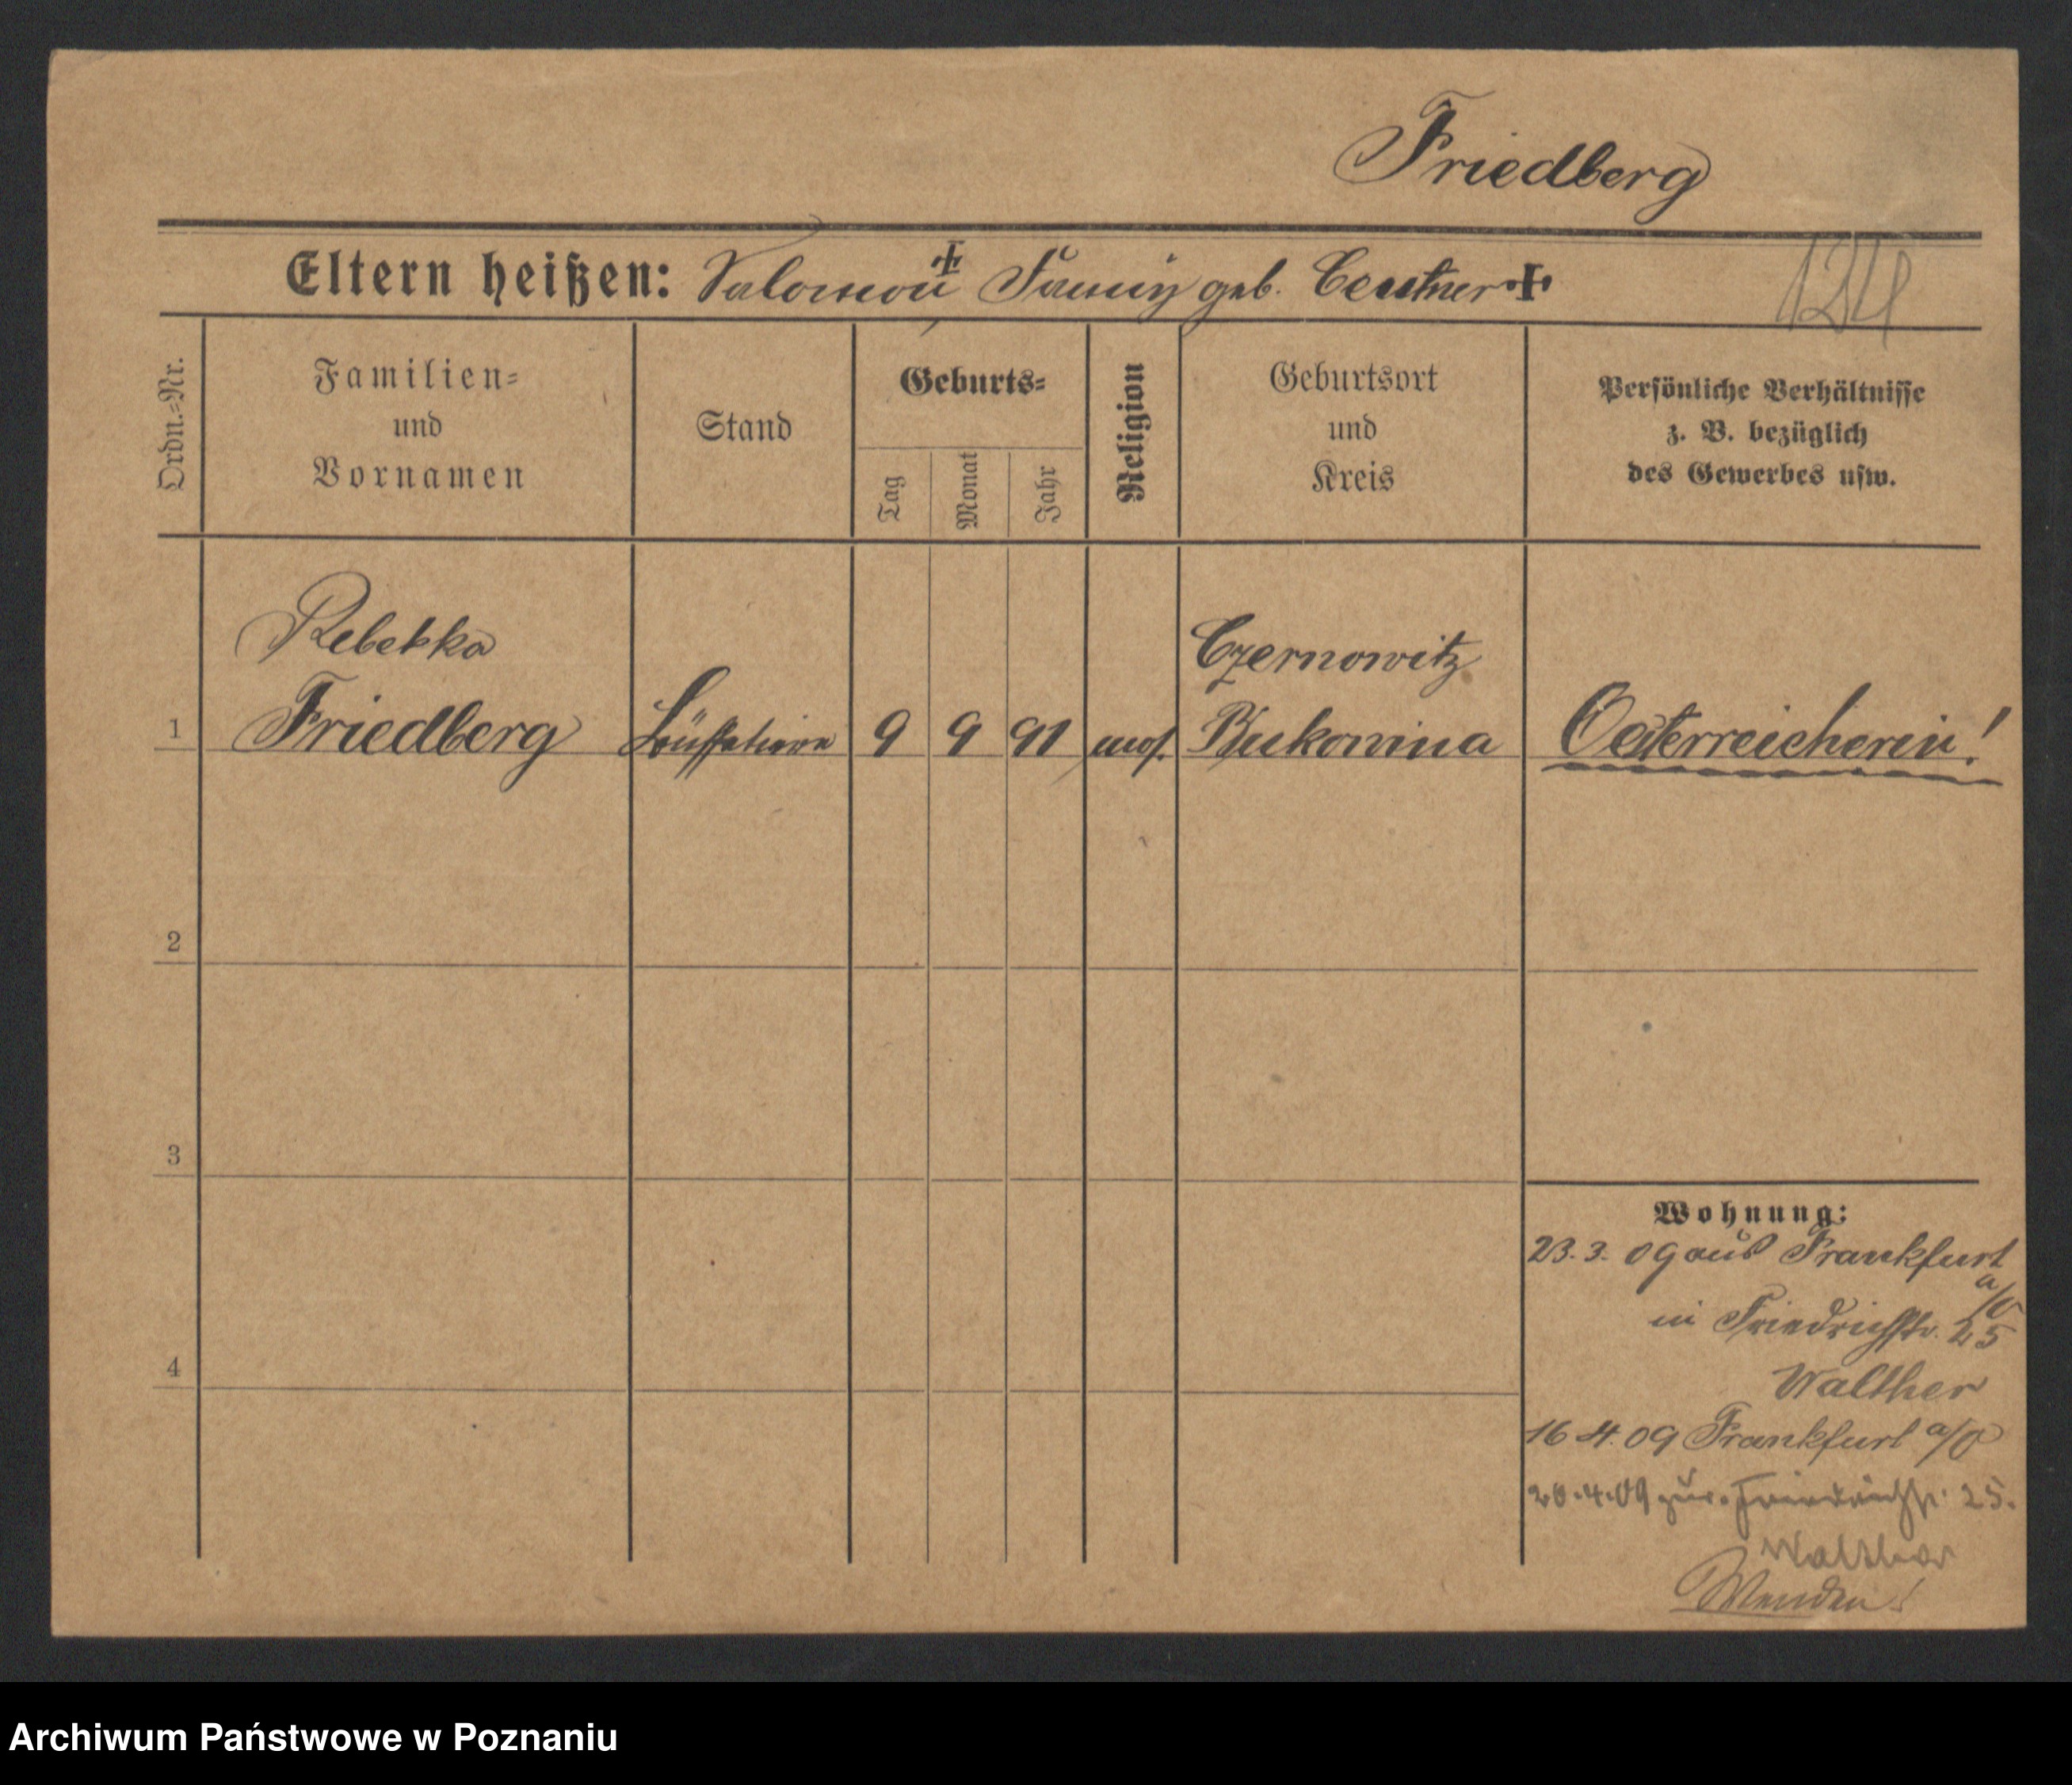 Friedberg
Eltern heißen: Salomon + Fanny geb. Centner +
124
Ordn.=Nr.
Familien=
und
Vornamen
Stand
Geburts=
Tag
Monat
Jahr
Religion
Geburtsort
und
Kreis
Persönliche Verhältnisse
z. B. bezüglich
des Gewerbes usw.
Rebekka
Czernowitz
1 Friedberg Büffetiere 9 9 91 mos. Bukowina Oesterreicherin!
2
3
4
Wohnung:
23.3.09 aus Frankfurt
a/O
in Friedrichstr. 25
Walther
16.4.09 Frankfurt a/O
20.4.09 zur. Friedrichstr. 25.
Walther
Wenden!
Archiwum Państwowe w Poznaniu